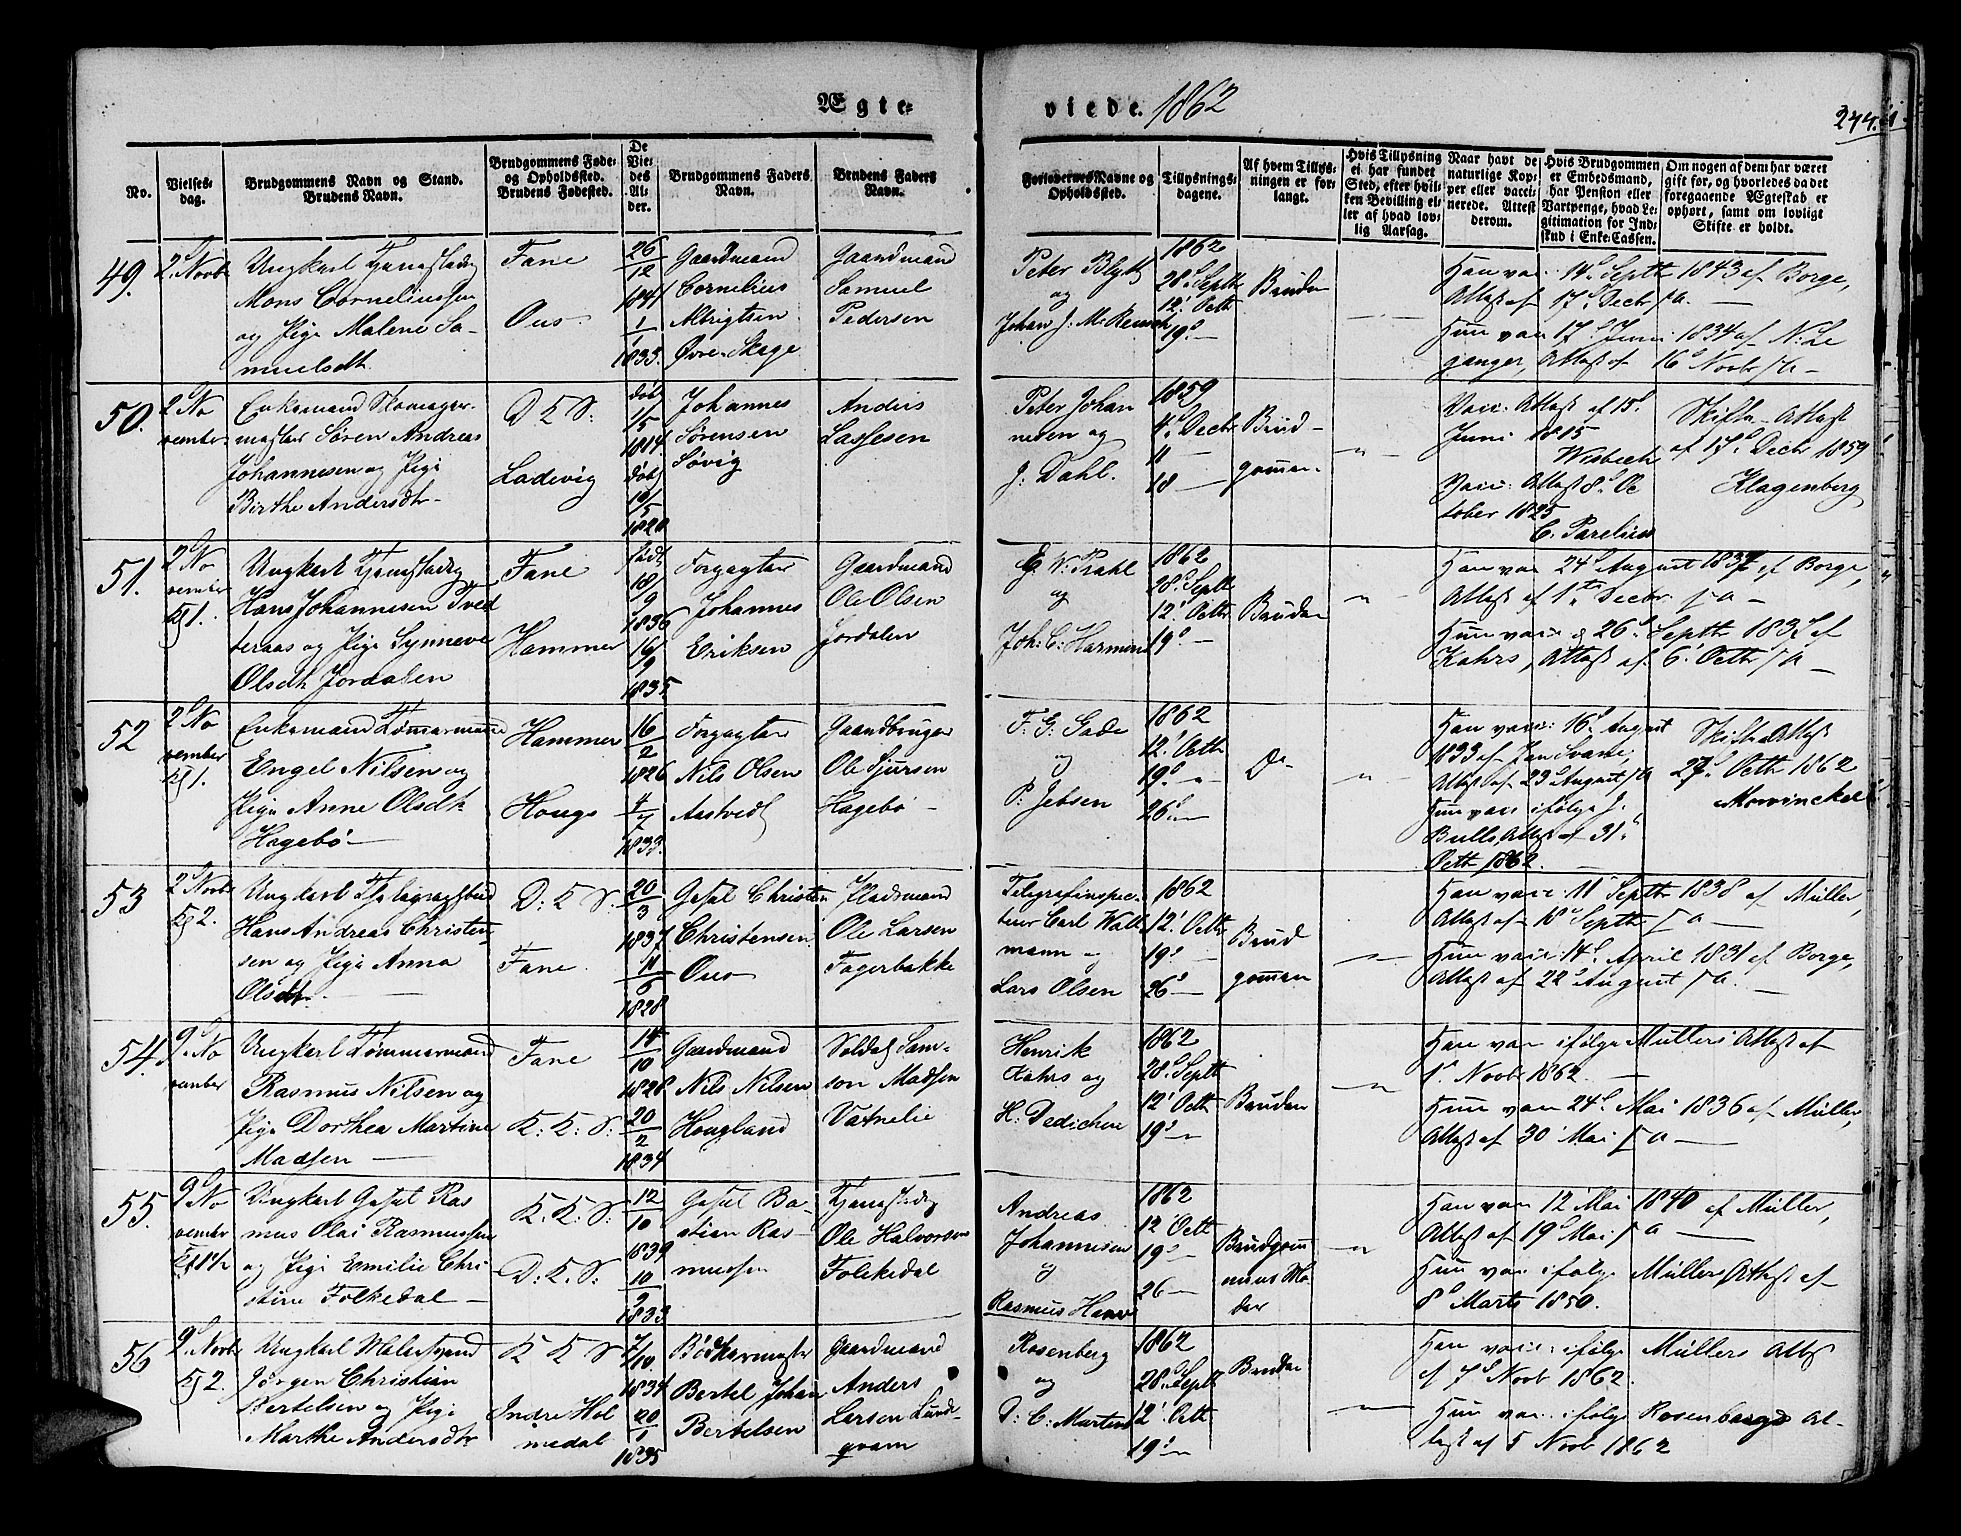 Ægte- viede. 1862
244.
No.
Vielses-
dag.
Brudgommens Navn og Stand.
Brudens Navn.
Brudgommens Føde-
og Opholdssted.
Brudens Fødested.
De
Vie-
des
Al-
der.
Brudgommens Faders
Navn.
Brudens Faders
Navn.
Forlovernes Navne og
Opholdssted.
Tillysnings-
dagene.
Af hvem Tillys-
ningen er for-
langt.
Hvis Tillysning
ei har fundet
Sted, efter hvil-
ken Bevilling el-
ler af hvad lov-
lig Aarsag.
Naar havt de
naturlige Kop-
per eller vacci-
nerede. Attest
derom.
Hvis Brudgommen
er Embedsmand,
har Pension eller
Vartpenge, hvad Le-
gitimation for Ind-
skud i Enke-Cassen.
Om nogen af dem har været
gift for, og hvorledes da det
foregaaende Ægteskab er
ophørt, samt om lovligt
Skifte er holdt.
49.
2d Novbr
Ungkarl
Mons Corneliussen
og Pige Malene Sa-
muelsdt.
Fane
Ous.
26/12
1841
1/1
1833.
Gaardmand
Cornelius
Albrigtsen
Øvre-Skage
Gaardmand
Samuel
Pedersen
Peter Blytt
og
Johan J. M. Reusch
1862
28d Septbr
12' Octbr
19d —
Bruden
Han vac: 14d Septbr 1843 af Borge,
Attest af 17d Decbr s/a. —
Hun vac 17d Juni 1834 af N: Le
ganger, Attest af 16d Novbr s/a —
50.
2d No
vember
Enkemand Skomager-
mester Søren Andreas
Johannesen og Pige
Birthe Andersdtr
D K S:
Ladevig
døbt
1/5
1814
døbt
19/5
1820
Johannes
Sørensen
Søvig
Anders
Lassesen
Peter Johan
nesen og
J. Dahl.
1859
4d Decbr
11 —
18 —
Brud-
gommen
— " —
Vacc: Attest af 15d
Juni 1815
Wisbech
Vacc: Attest 8d Oc
tober 1825
C. Parelius
Skifte-Attest
af 17d Decbr 1859
Klagenberg
51.
2d No
vember
Kl 1.
Ungkarl
Hans Johannesen Tved
teraas og Pige Synneve
Olsdt Jordalen
Fane
Hammer
født
18/9
1836
16/9
1835.
Forpagter
Johannes
Eriksen
Gaardmand
Ole Olsen
Jordalen
G. W. Prahl
og
Joh: C: Harmens
1862
28d Septbr
12' Octbr
19d —
Bruden
— " —
Han vac 24d August 1837 af Borge,
Attest af 1ste Decbr s/a —
Hun vac: 26d Septbr 1835 af
Kahrs, Attest af 6' Octbr s/a —
52
2d No
vember
Kl 1.
Enkemand Tømmermand
Engel Nilsen og
Pige Anne Olsdtr
Hagebø —
Hammer
Hougs
16/2
1826
4/7
1833.
Forpagter
Nils Olsen
Aastvedt
Gaardbruger
Ole Sjursen
Hagebø —
F. G. Gade
og
P: Jebsen
1862
12' Octbr
19d — "
26d —
Do
— " —
Han vac: 16d August
1833 af Jan Svane,
Attest af 23d August s/a
Hun vac: ifølge J.
Bulls Attest af 31d
Octbr 1862.
Skifte Attest
27d Octbr 1862
Mowinckel
53
2d Novbr
Kl 2.
Ungkarl
Hans Andreas Christen-
sen og Pige Anna
Olsdtr. —
D: K S:
Fane.
20/3
1837
11/6
1828
Gesel Christen
Christensen
Ous
Pladsmand
Ole Larsen
Fagerbakke
Telgrafinspec-
teur Carl Walt
mann og
Lars Olsen
1862
12' Octbr
19d —
26d —
Brud
gommen
— " —
Han vac: 11' Septbr 1838 af Müller,
Attest af 18d Septbr s/a —
Hun vac: 14d April 1831 af Borge,
Attest af 22d August s/a. —
54.
9d No
vember
Ungkarl Tømmermand
Rasmus Nilsen og
Pige Dorthea Martine
Madsen —
Fane
K: K: S:
14/10
1828
20/2
1834
Gaardmand
Nils Nilsen
Hougland
Soldat Sam-
son Madsen
Vatnelie
Henrik
Kahrs og
H: Dedichen
1862
28d Septbr
12' Octbr
19d — "
Bruden
— " —
Han vac ifølge Müllers Attest af
1d Novbr 1862. —
Hun vac 24d Mai 1836 af Müller,
Attest af 30 Mai s/a —
55.
9d No
vember
Ungkarl Gesel Ras
mus Olai Rasmussen
og Pige Emilie Chri
stine Folkedal —
K: K: S:
D: K. S:
12/10
1839
10/9
1833
Gesel Ba-
stian Ras-
mussen
Ole Halvorsen
Folkedal
Andreas
Johannesen
og
Rasmus Hansen
1862
12' Octbr
19d —
26 —
Brudgom
mens Mo
der
— " —
Han vac 12 Mai 1840 af Müller,
Attest af 19d Mai s/a —
Hun vac ifølge Müllers Attest af
8d Marts 1850.
56
9d Novbr
Kl 2.
Ungkarl Malersvend
Jørgen Christian
Bertelsen og Pige
Marthe Andersdtr
K K S
Indre Hol
medal
7/10
1834
20/1
1835
Bødkermester
Bertel Johan
Bertelsen
Gaardmand
Anders
Larsen Lund-
qvam
Rosenberg
og
D: C. Martens
1862
28d Septbr
12' Octbr
19' — "
Bruden
— " —
Han vac: ifølge Müllers Attest
af 7d Novbr 1862.
Hun vac: ifølge Rosenbergs At-
test af 5 Novbr 1862